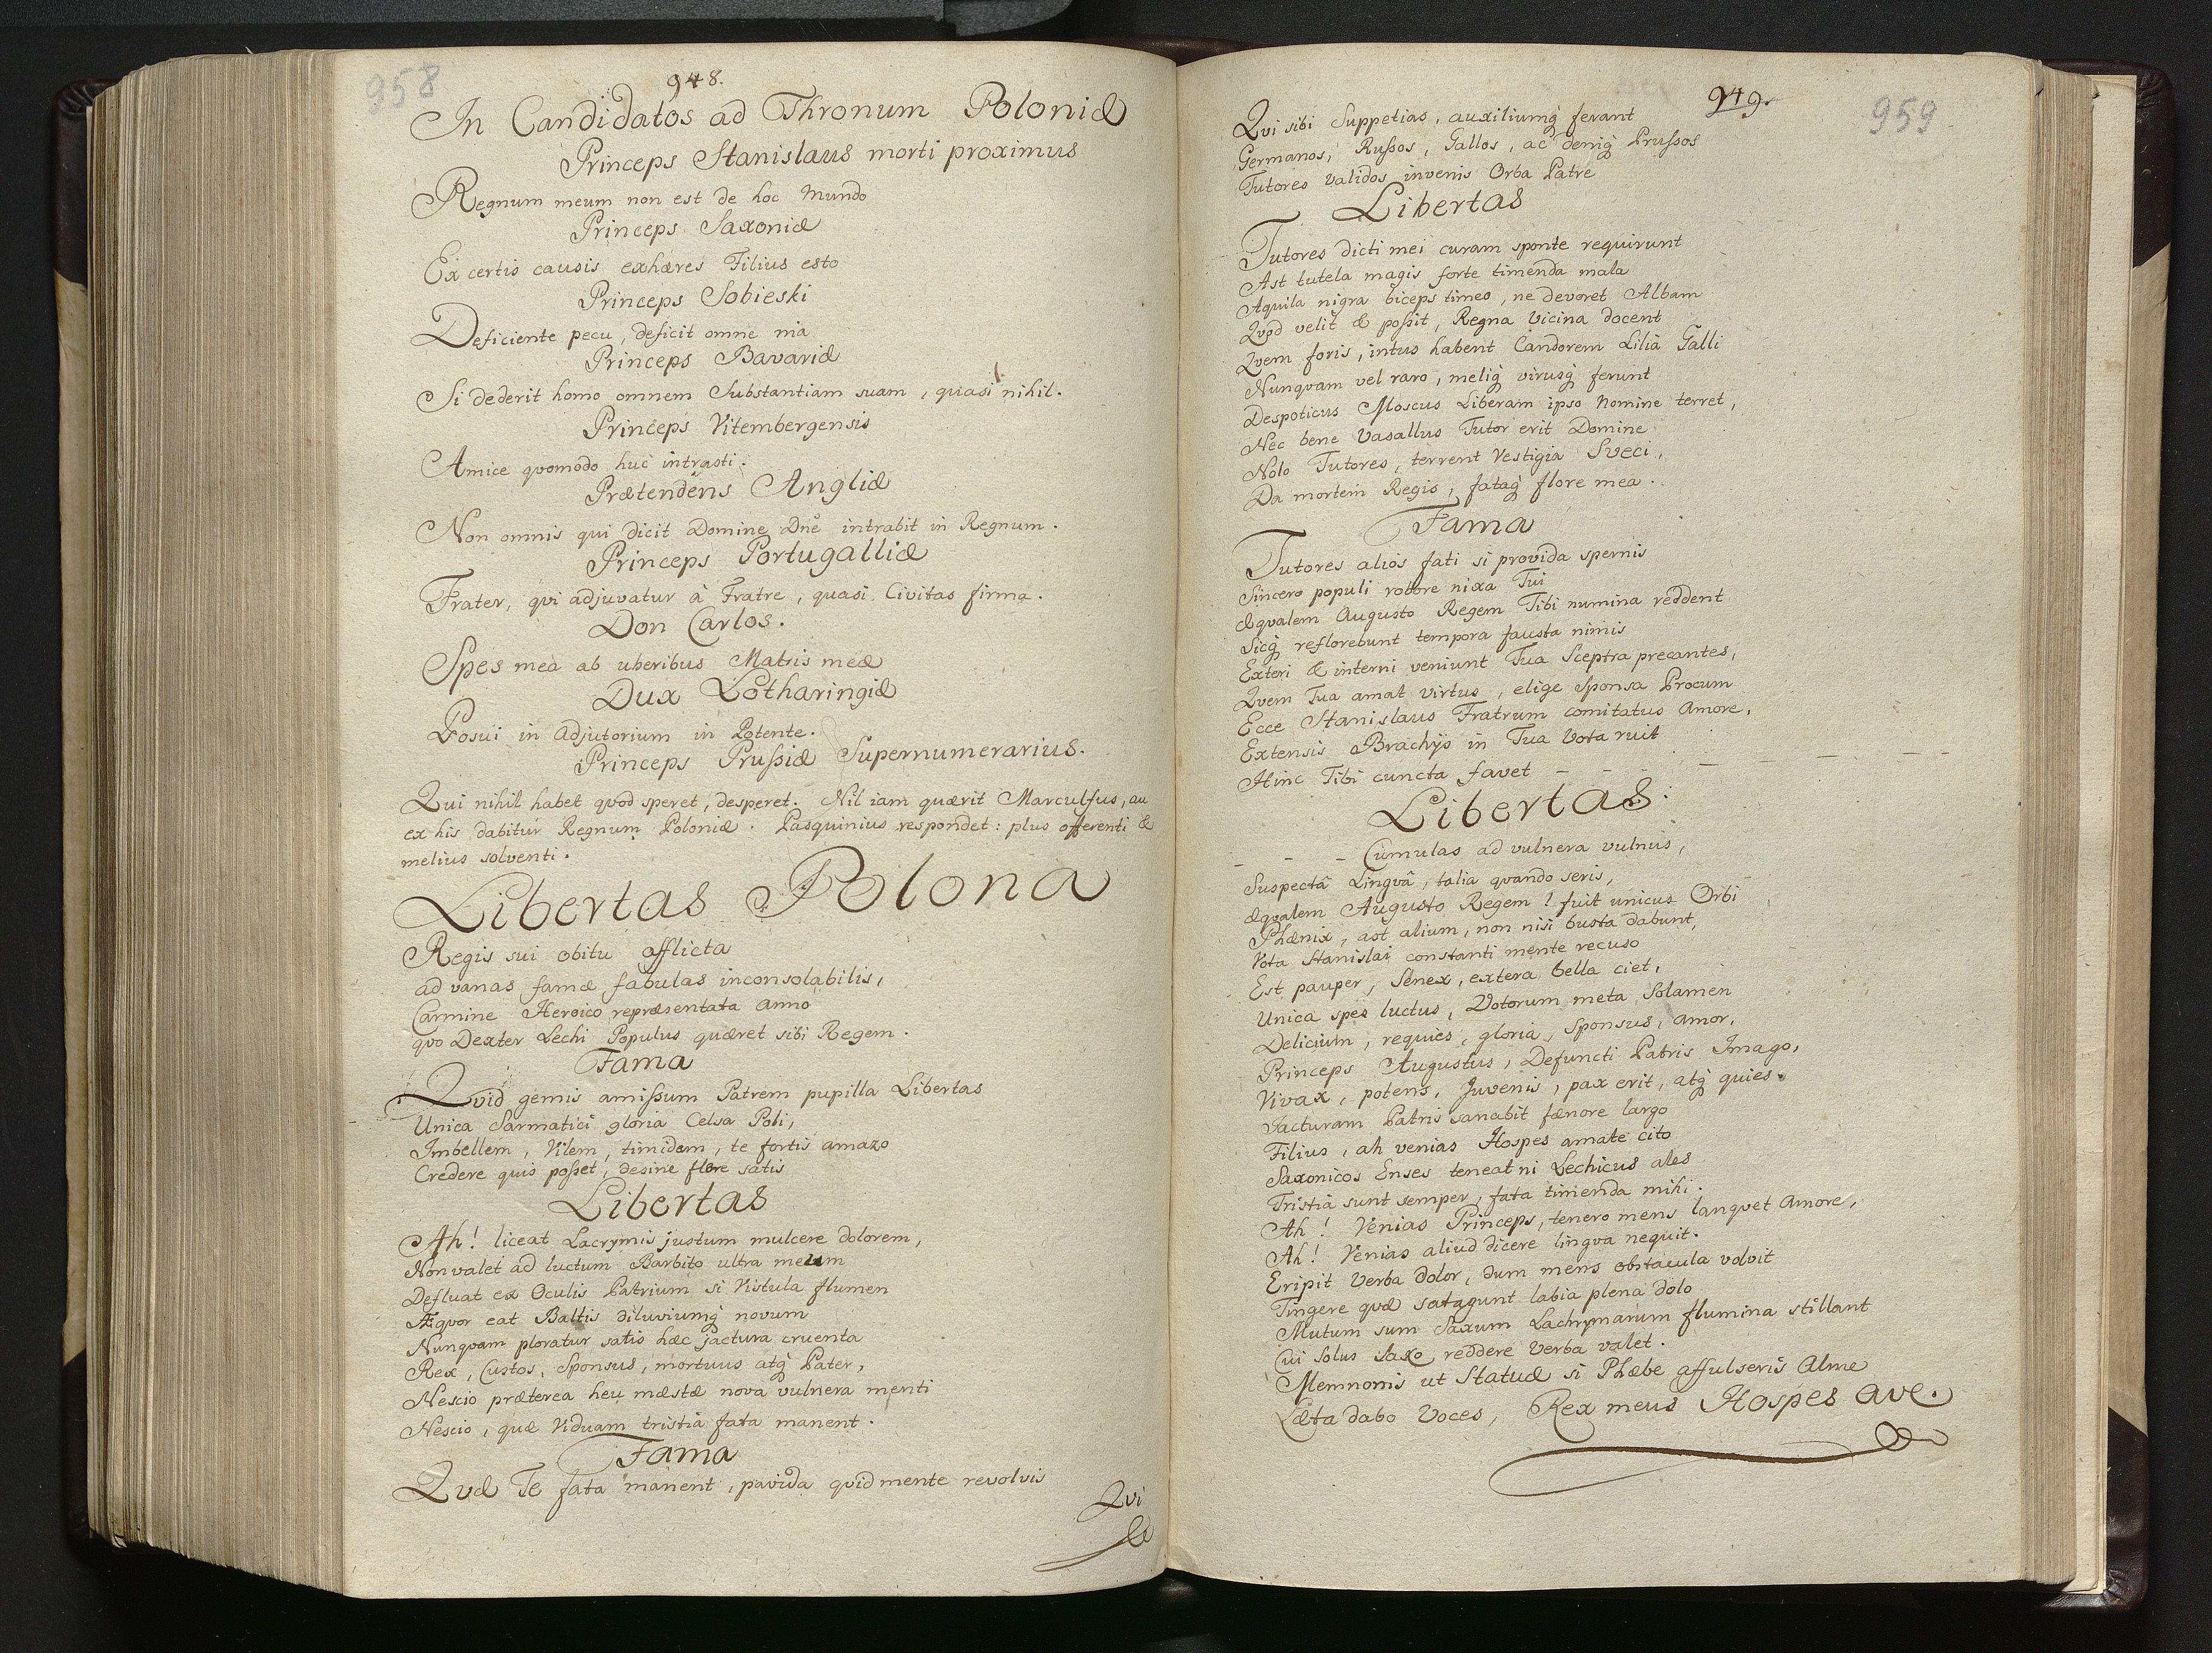 958
948.
In Candidatos ad Thronum Poloniæ
Princeps Stanislaus morti proximus
Regnum meum non est de hoc Mundo
Princeps Saxoniæ
Ex certis causis exhæres Filius esto
Princeps Sobieski
Deficiente pecu, deficit omne nia
Princeps Bavariæ
Si dederit homo omnem Substantiam suam, quasi nihil.
Princeps Vitembergensis
Amice qvomodo huc intrasti.
Prætendens Angliæ
Non omnis qui dicit Domine Dne intrabit in Regnum.
Princeps Portugalliæ
Frater, qvi adjuvatur à Fratre, quasi Civitas firma.
Don Carlos.
Spes mea ab uberibus Matris meæ
Dux Lotharingiæ
Posui in Adjutorium in Potente.
Princeps Prussiæ Supernumerarius.
Qui nihil habet qvod speret, desperet. Nil iam quærit Marculfus, au
ex his dabitur Regnum Poloniæ. Pasquinius respondet: plus offerenti &
melius solventi.
Libertas Polona
Regis sui obitu afflicta
ad vanas famæ fabulas inconsolabilis,
Carmine Heroico repræsentata anno
quo Dexter Lechi Populus quæret sibi Regem.
Fama
Qvid gemis amissum Patrem pupilla Libertas
Unica Sarmatici gloria Celsa Poli,
Imbellem, Vilem, timidam, te fortis amazo
Credere quis posset, desine flere satis
Libertas
Ah! liceat Lacrymis justum mulcere dolorem,
Non valet ad luctum Barbito ultra meum
Defluat ex Oculis Patrium si Vistula flumen
Æqvor eat Baltis diluviumq novum
Nunqvam ploratur satis hæc jactura cruenta
Rex, Custos, Sponsus, mortuus atq Pater,
Nescio præterea heu mæstæ nova vulnera menti
Nescio, quæ Viduam tristia fata manent.
Fama
Qvæ Te fata manent, pavida qvid mente revolvis
Qvi
949
959
Qvi sibi Suppetias, auxiliumq ferant
Germanos, Russos, Gallos, ac deniq Prussos
Tutores validos invenis Orba Patre
Libertas
Tutores dicti mei curam sponte requirunt
Ast tutela magis forte timenda mala
Aquila nigra biceps timeo, ne devoret Albam
Qvod velit & possit, Regna vicina docent
Qvem foris, intus habent Candorem Lilia Galli
Nunqvam vel raro, meliq virusq ferunt
Despoticus Moscus Liberam ipso Nomine terret,
Nec bene Vasallus Tutor erit Domine
Nolo Tutores, terrent Vestigia Sveci,
Da mortem Regis, fataq flore mea.
Fama
Tutores alios fati si provida spernis
Sincero populi robore nixa Tui
Æqvalem Augusto Regem Tibi numina reddent
Sicq reflorebunt tempora fausta nimis
Exteri & interni veniunt Tua Sceptra precantes,
Qvem Tua amat virtus, elige Sponsa Procum
Ecce Stanislaus Fratrum comitatus Amore,
Extensis Brachijs in Tua Vota ruit
Hinc Tibi cuncta favet - - - - - -
Libertas.
- - - Cumulas ad vulnera vulnus,
Suspectâ Lingvâ, talia qvando seris,
Æqvalem Augusto Regem! fuit unicus Orbi
Phænix, ast alium, non nisi busta dabunt,
Vota Stanislai constanti mente recuso
Est pauper, Senex, extera bella ciet,
Unica spes luctus, Votorum meta Solamen
Delicium, requies, gloria, Sponsus, Amor,
Princeps Augustus, Defuncti Patris Imago,
Vivax, potens, Juvenis, pax erit, atq quies.
Jacturam Patris sanabit fænore largo
Filius, ah venias Hospes amate cito
Saxonicos Enses teneat ni Lechicus ales
Tristia sunt semper, fata timenda mihi.
Ah! Venias Princeps, tenero mens langvet Amore,
Ah! Venias aliud dicere lingva nequit.
Eripit Verba dolor, dum mens obstacula volvit
Tingere quæ satagunt labia plena dolo
Mutum sum Saxum Lachrymarum flumina stillant
Cui Solus Saxo reddere Verba valet.
Memnonis ut Statuæ si Phæbe affulseris Alme
Læta dabo Voces, Rex meus Hospes Ave.